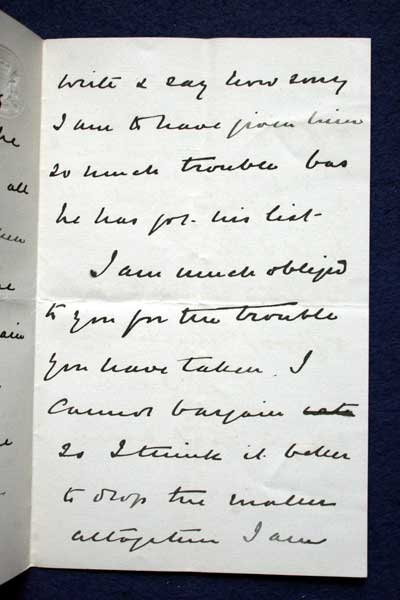 write & say how sorry
I am to have given him
so much trouble but
he has got his list
I am much obliged
to you for the trouble
you have taken. I
cannot bargain
so I think it better
to drop the matter
altogether I am
he
all